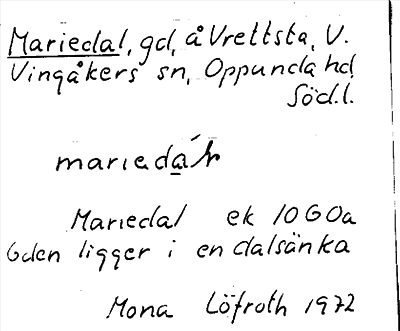 Mariedal, gd, å Vrettsta, V.
Vingåkers sn, Oppunda hd
Söd.l.
Mariedal ek 10G0a
Gden ligger i en dalsänka
Mona Löfroth 1972